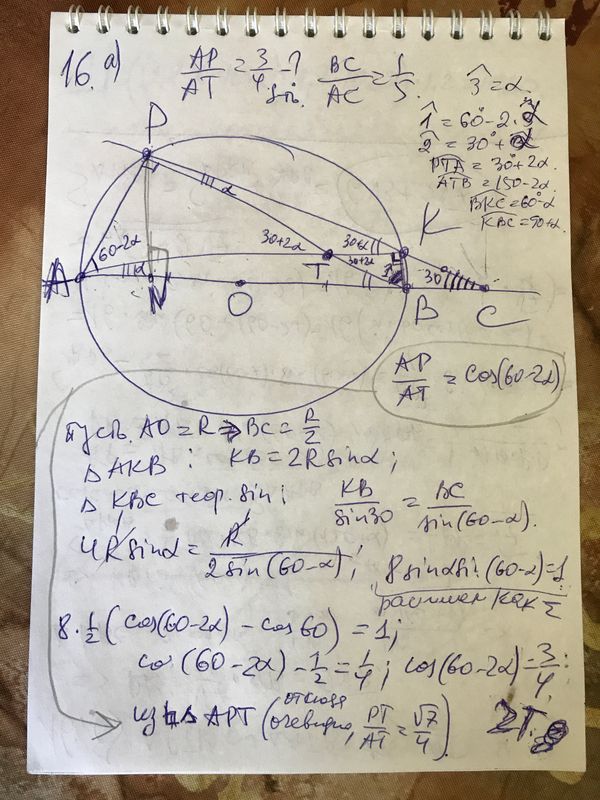 16. а) AP/AT = 3/4 - ? BC/AC = 1/5.
3̂ = α.
1̂ = 60° - 2·α
2̂ = 30° + α
PTA = 30° + 2α
ATB = 150 - 2α
BKC = 60° - α
KBC = 90 + α.
P
α
K
60-2α
30+2α
30+α
30+2α
A
α
N
O
T
B
30°
C
AP/AT = cos(60-2α)
пусть AO = R ⇒ BC = R/2
Δ AKB : KB = 2R sin α;
Δ KBC теор. sin; KB/sin30 = BC/sin(60-α).
4R sin α = R/2sin(60-α); 8 sin α sin(60-α) = 1
распишем как Σ
8 · 1/2 (cos(60-2α) - cos 60) = 1;
cos(60-2α) - 1/2 = 1/4; cos(60-2α) = 3/4.
из Δ APT (отсюда очевидно, PT/AT = √7/4).